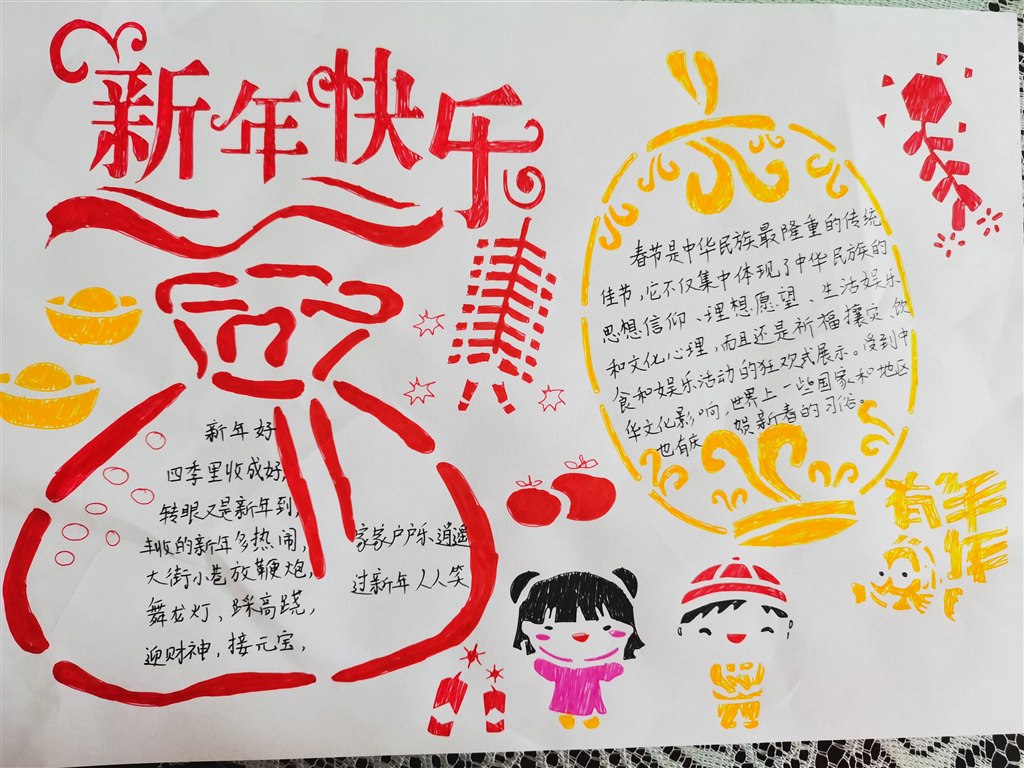 新年快乐
新年好
四季里收成好,
转眼又是新年到,
丰收的新年多热闹,
大街小巷放鞭炮,
舞龙灯、踩高跷,
迎财神,接元宝,
家家户户乐逍遥
过新年人人笑
春节是中华民族最隆重的传统
佳节,它不仅集中体现了中华民族的
思想信仰、理想愿望、生活娱乐
和文化心理,而且还是祈福攘灾、饮
食和娱乐活动的狂欢式展示。受到中
华文化影响,世界上一些国家和地区
也有庆贺新春的习俗。
有年